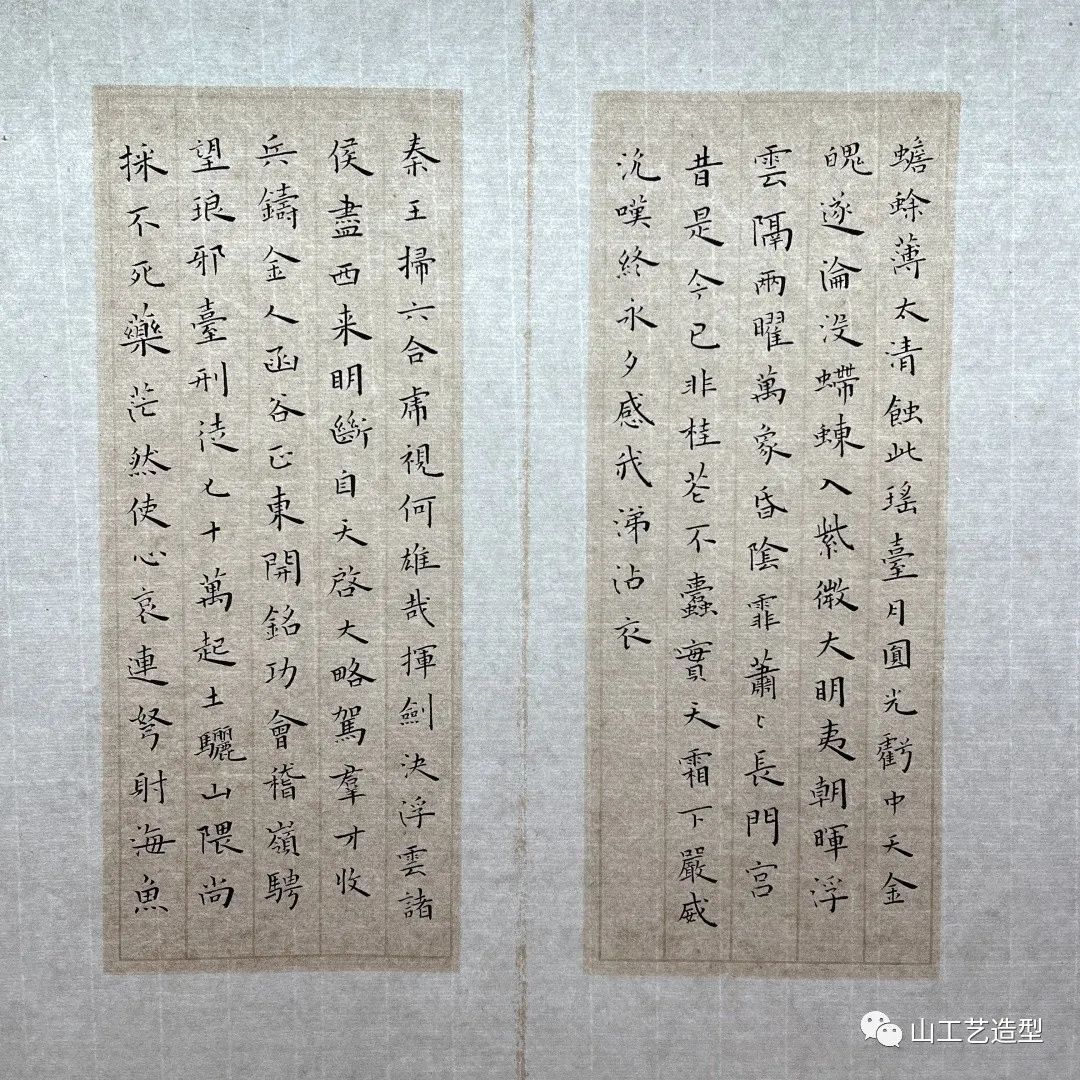 蟾蜍薄太清蝕此瑤臺月圓光虧中天金
魄遂淪没螮蝀入紫微大明夷朝暉浮
雲隔兩曜萬象昏陰霏蕭〻長門宫
昔是今已非桂花不蠹實天霜下嚴威
沉嘆終永夕感我涕沾衣
秦王掃六合虎視何雄哉揮劍決浮雲諸
侯盡西来明斷自天啓大略駕羣才收
兵鑄金人函谷正東開銘功會稽嶺騁
望琅邪臺刑徒七十萬起土驪山隈尚
採不死藥茫然使心哀連弩射海魚
山工艺造型